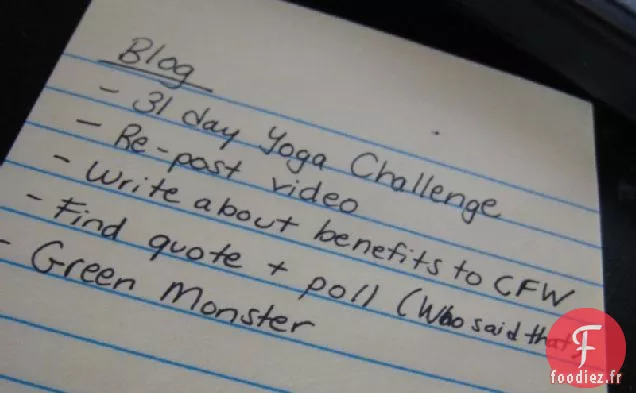 Blog
- 31 day Yoga Challenge
- Re-post video
- Write about benefits to CFW
- Find quote + poll (Who said that
- Green Monster
F
foodiez.fr